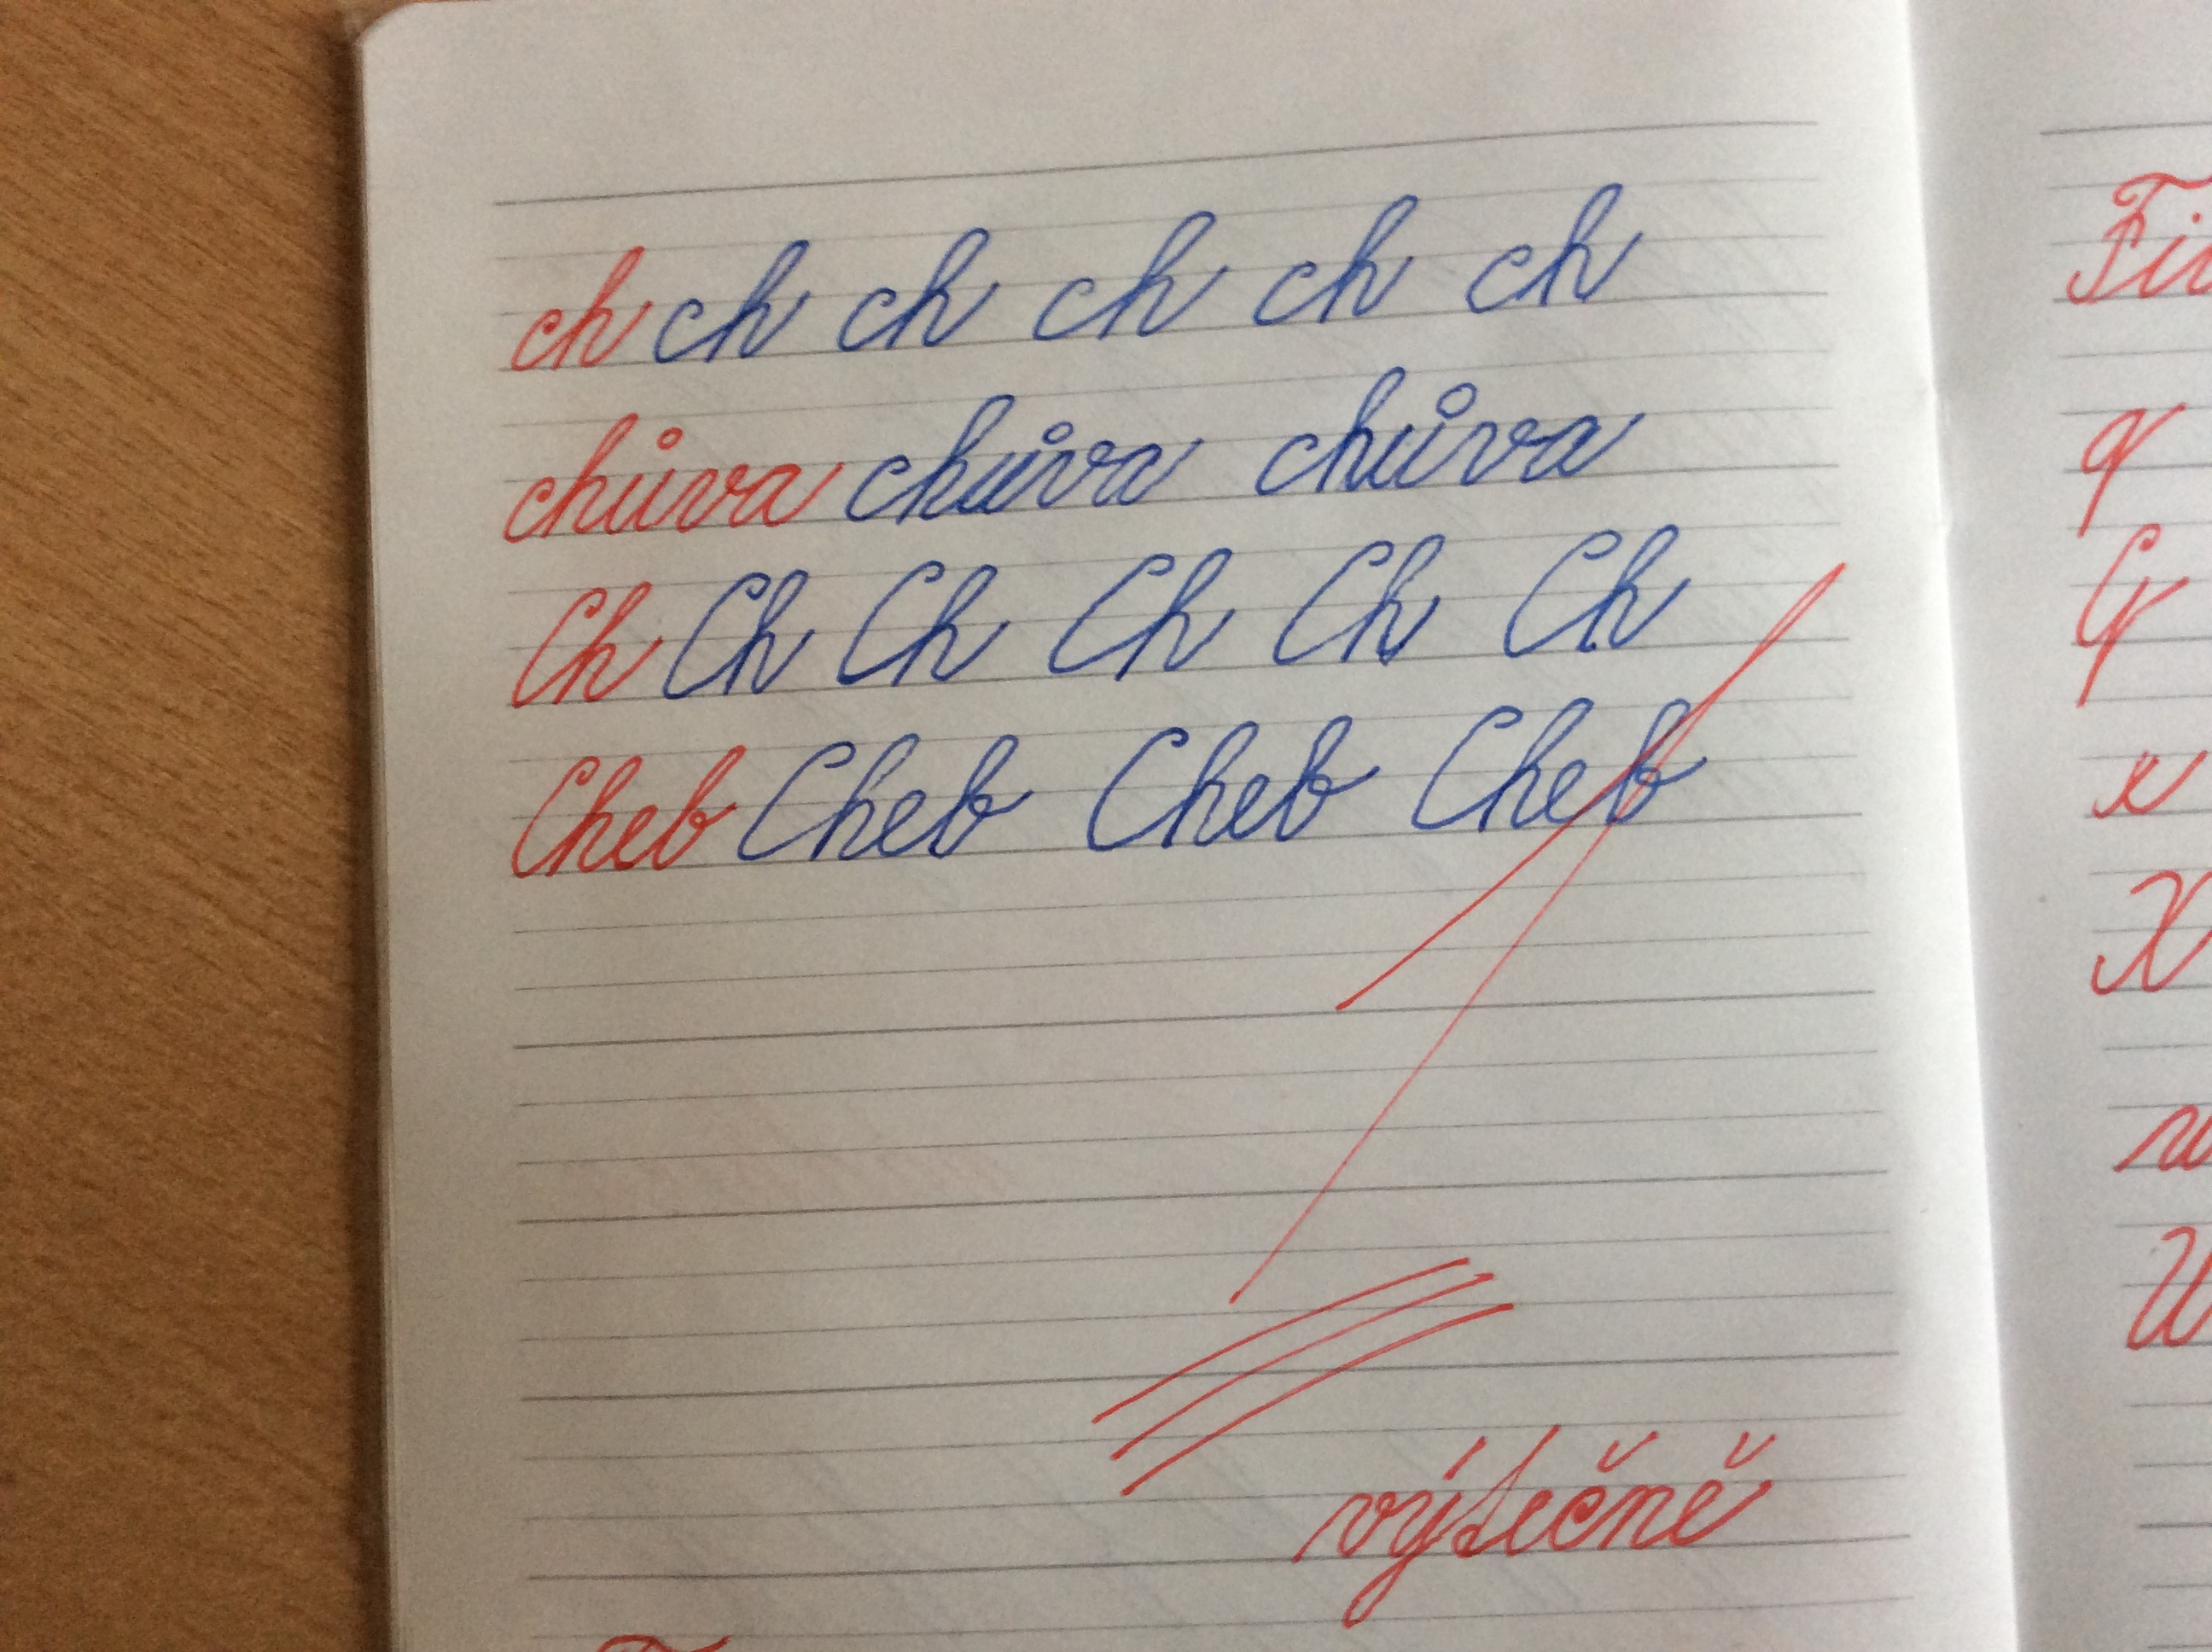 ch ch ch ch ch ch
chůva chůva chůva
Ch Ch Ch Ch Ch Ch
Cheb Cheb Cheb Cheb
výtečně
q
x
X